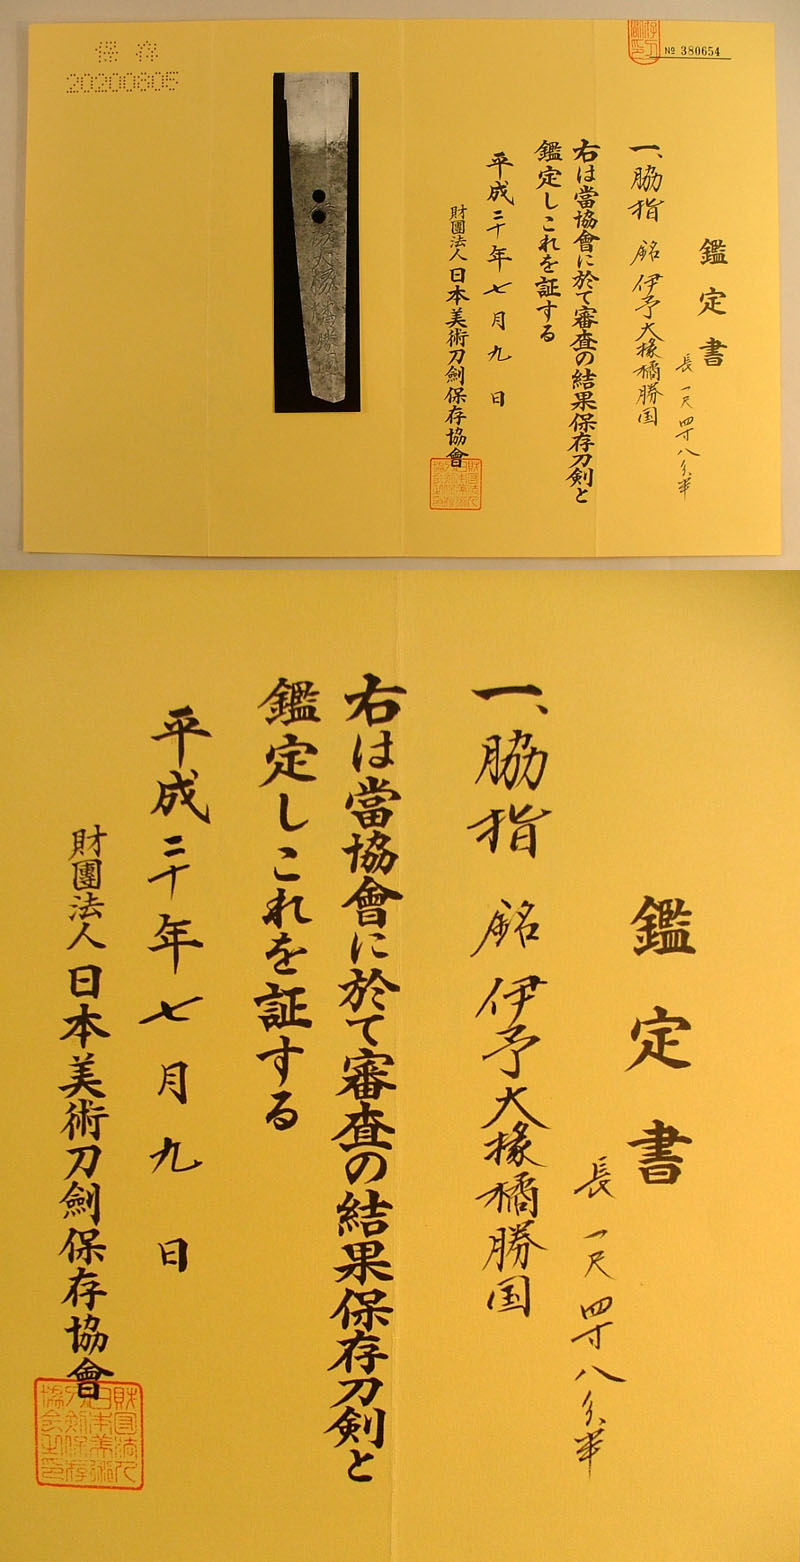 保存
20200805
№ 380654
鑑定書
長一尺四寸八分半
一、脇指 銘 伊予大掾橘勝国
右は當協會に於て審査の結果保存刀剣と
鑑定しこれを証する
平成二十年七月九日
財團法人日本美術刀劍保存協會
鑑定書
長一尺四寸八分半
一、脇指 銘 伊予大掾橘勝国
右は當協會に於て審査の結果保存刀剣と
鑑定しこれを証する
平成二十年七月九日
財團法人日本美術刀劍保存協會
財団法人
日本美術
刀剣保存
協会之印